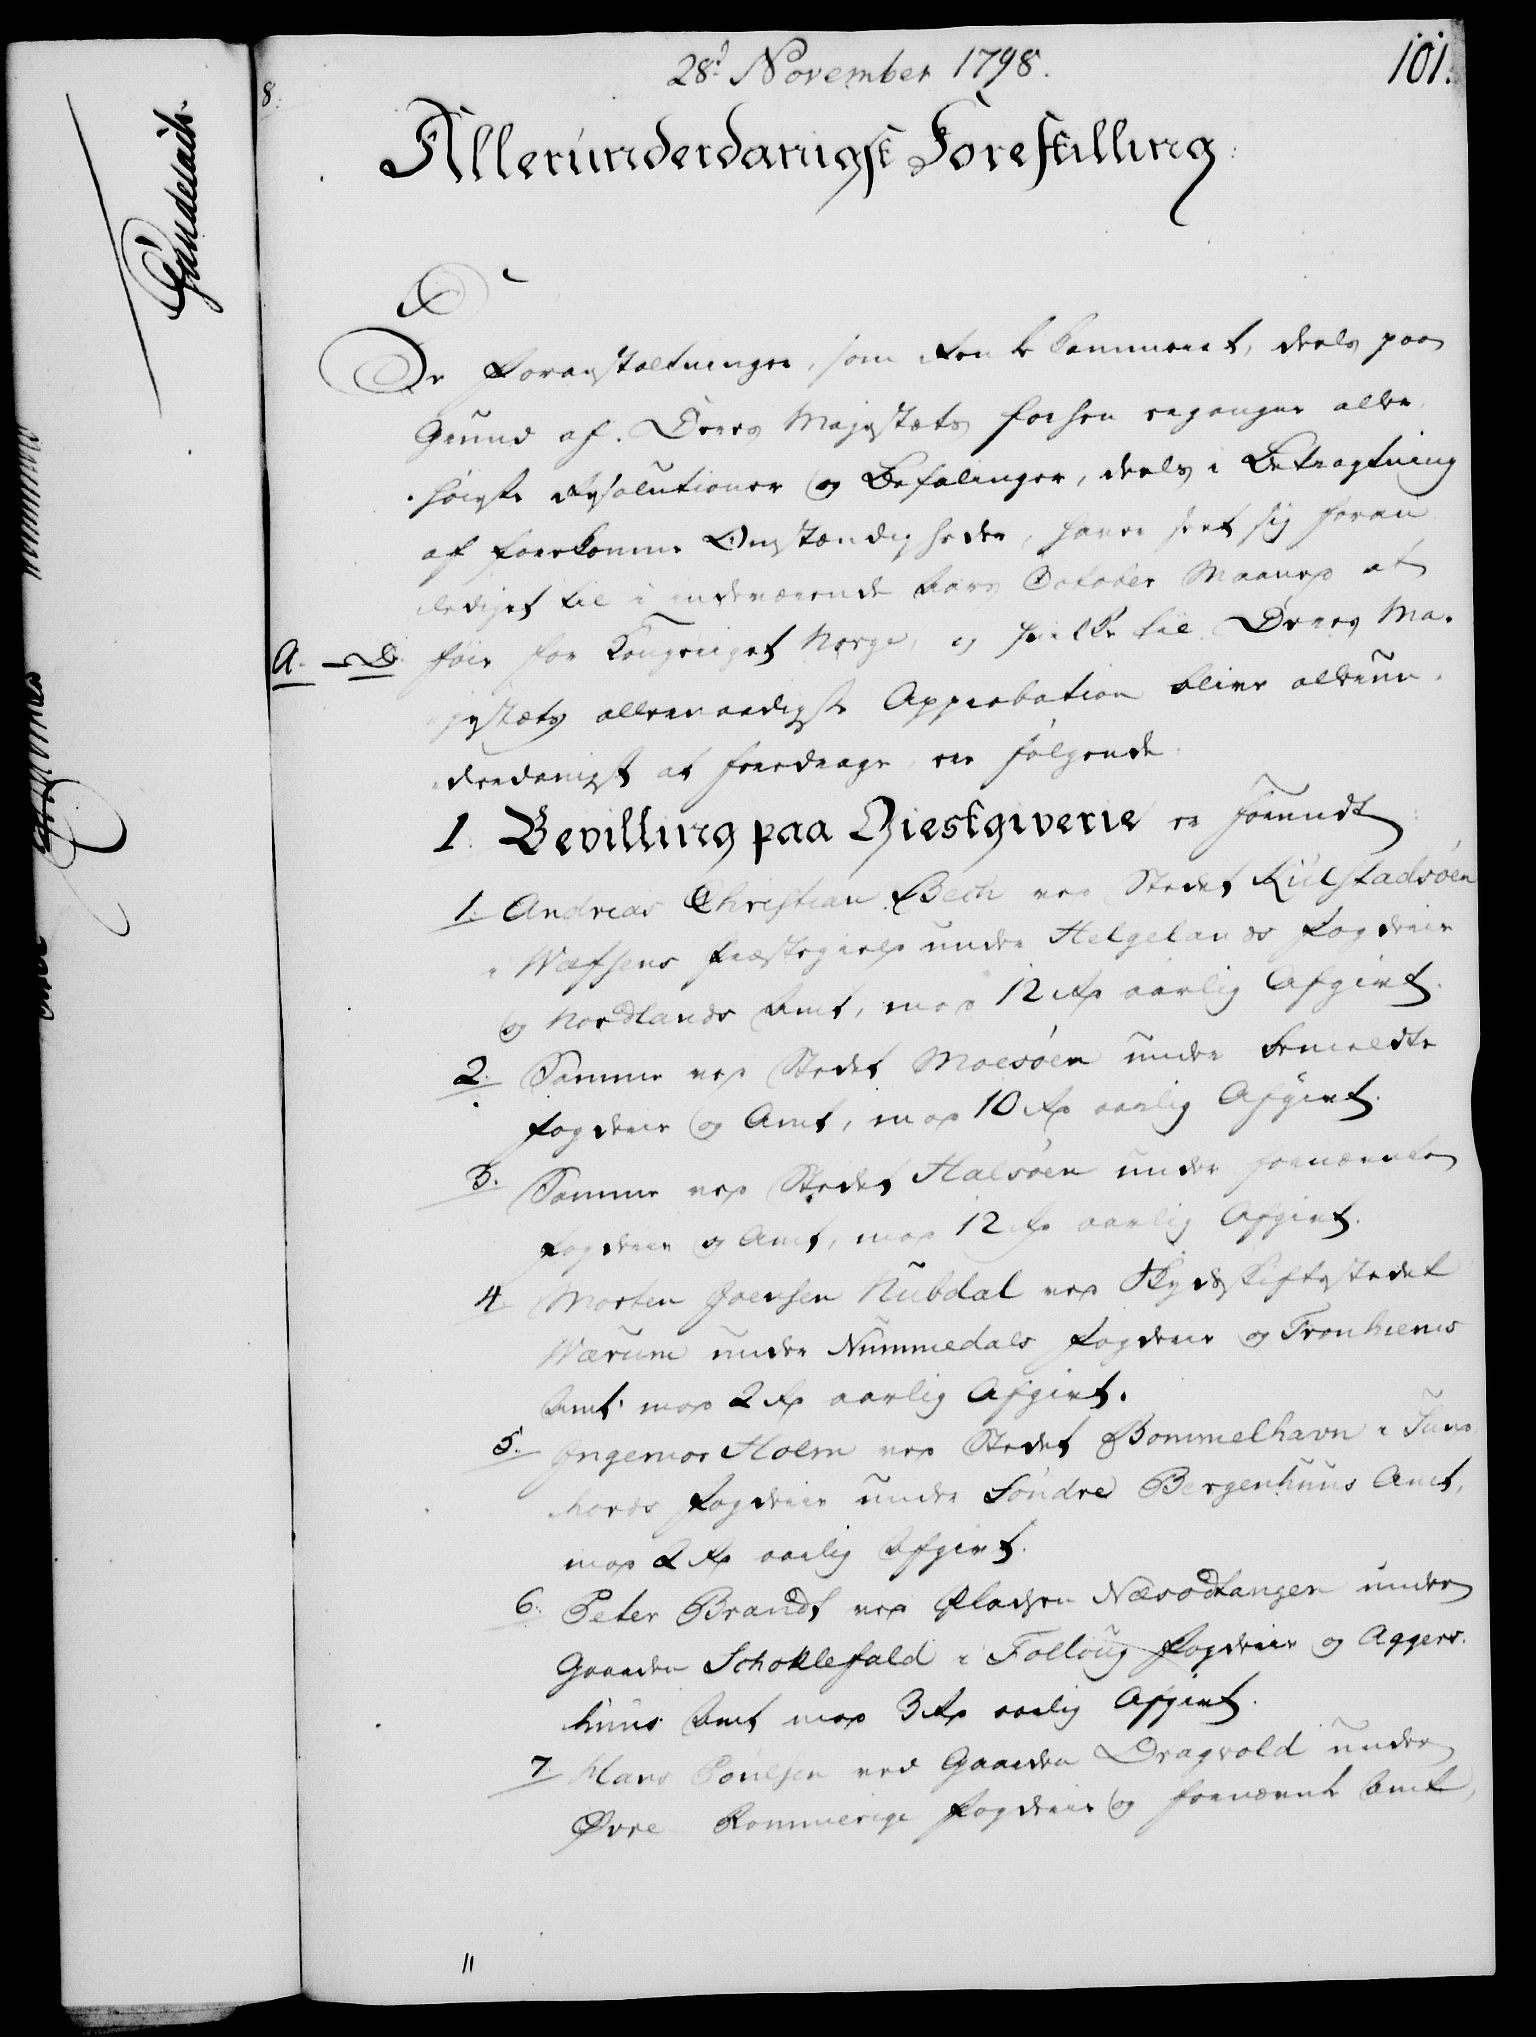 28d November 1798.
101.
8.
Allerunderdanigst Forestilling:
De Foranstaltninger, som Rentekammeret, deels paa
Grund af Deres Majestæts forhen ergangne aller-
høieste Resolutioner og Befalinger, deels i Betragtning
af forekomne Omstændigheder, haver seet sig foran-
lediget til i indeværende Aars October Maaned at
A. – D. føie for Kongeriget Norge, og hvilke til Deres Ma-
jestæts allernaadigste Approbation blive allerun-
derdanigst at foredrage, ere følgende:
1. Bevilling paa Giestgiverie er forundt:
1. Andreas Christian Bech ved Stedet Kulstadsøen
i Wefsens Præstegield under Helgelands Fogderie
og Nordlands Amt, mod 12 Rd aarlig Afgivt.
2. Samme ved Stedet Moesøen under bemeldte
Fogderie og Amt, mod 10 Rd aarlig Afgivt.
3. Samme ved Stedet Halsøen under fornævnte
Fogderie og Amt, mod 12 Rd aarlig Afgivt.
4. Morten Joensen Nubdal ved Skydsskiftestedet
Wærum under Nummedals Fogderie og Tronhiems
Amt mod 2 Rd aarlig Afgivt.
5. Ingemor Holm ved Stedet Bommelhavn i Sund-
hords Fogderie under Søndre Bergenhuus Amt,
mod 2 Rd aarlig Afgivt.
6. Peter Brandt ved Pladsen Næsodtangen under
Gaarden Schoklefald i Folloug Fogderie og Aggers-
huus Amt mod 3 Rd aarlig Afgivt.
7. Hans Poulsen ved Gaarden Dragvold under
Øvre Rommerige Fogderie og fornævnte Amt,